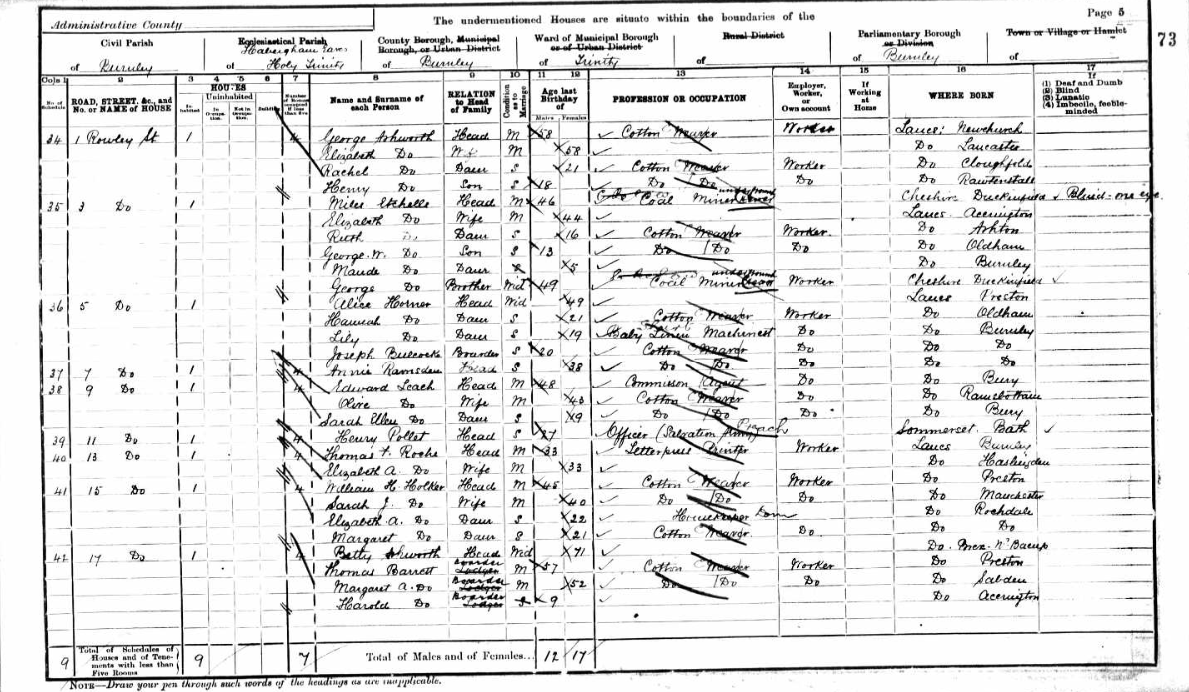 Administrative County
The undermentioned Houses are situate within the boundaries of the
Page 5
73
Civil Parish
of Burnley
Ecclesiastical Parish
of Holy Trinity
County Borough, Municipal Borough, or Urban District
of Burnley
Ward of Municipal Borough or of Urban District
of Trinity
Rural District
of
Parliamentary Borough or Division
of Burnley
Town or Village or Hamlet
of
Cols 1 2 3 4 5 6 7 8 9 10 11 12 13 14 15 16 17
No. of Schedule
ROAD, STREET, &c., and No. or NAME of HOUSE
HOUSES
Inhabited
Uninhabited
In Occupation
Not in Occupation
Building
Number of Rooms occupied if less than five
Name and Surname of each Person
RELATION to Head of Family
Condition as to Marriage
Age last Birthday of
Males Females
PROFESSION OR OCCUPATION
Employer, Worker, or Own account
If Working at Home
WHERE BORN
If
(1) Deaf and Dumb
(2) Blind
(3) Lunatic
(4) Imbecile, feeble-minded
34 1 Rowley St 1 George Ashworth Head M 58 Cotton Weaver Worker Lancs: Newchurch
Elizabeth Do Wife M 58 Do Lancaster
Rachel Do Daur S 21 Cotton Weaver Worker Do Cloughfold
Henry Do Son S 18 Do Do Do Do Rawtenstall
35 3 Do 1 Miles Etchells Head M 46 Coal Miner Hewer underground Cheshire Duckinfield Blind - one eye
Elizabeth Do Wife M 44 Lancs Accrington
Ruth Do Daur S 16 Cotton Weaver Worker Do Ashton
George W. Do Son S 13 Do Do Do Do Oldham
Maude Do Daur 5 Do Burnley
George Do Brother Wid 49 Coal Miner underground Worker Cheshire Duckinfield
36 5 Do 1 Alice Horner Head Wid 49 Lancs Preston
Hannah Do Daur S 21 Cotton Weaver Worker Do Oldham
Lily Do Daur S 19 Baby Linen Machinest Do Do Burnley
Joseph Bulcock Boarder S 20 Cotton Weaver Do Do Do
37 7 Do 1 4 Annie Ramsden Head S 38 Do Do Do Do Do
38 9 Do 1 4 Edward Leach Head M 48 Commission Agent Do Do Bury
Olive Do Wife M 40 Cotton Weaver Do Do Ramsbottom
Sarah Ellen Do Daur S 19 Do Do Do Do Bury
39 11 Do 1 4 Henry Pollet Head S 27 Officer (Salvation Army) Preach Sommerset Bath
40 13 Do 1 4 Thomas F. Roche Head M 33 Letterpress Printer Worker Lancs Burnley
Elizabeth A. Do Wife M 33 Do Haslingden
41 15 Do 1 4 William H. Holker Head M 45 Cotton Weaver Worker Do Preston
Sarah J. Do Wife M 40 Do Do Do Do Manchester
Elizabeth A. Do Daur S 22 Housekeeper Dom Do Rochdale
Margaret Do Daur S 21 Cotton Weaver Do Do Do
42 17 Do 1 4 Betty Ashworth Head Wid 71 Do Bacup
Thomas Barrett Boarder Lodger M 57 Cotton Weaver Worker Do Preston
Margaret A. Do Boarder Lodger M 52 Do Do Do Do Sabden
Harold Do Boarder Lodger S 9 Do Accrington
9 Total of Schedules of Houses and of Tenements with less than Five Rooms 9 7 Total of Males and of Females... 12 17
NOTE—Draw your pen through such words of the headings as are inapplicable.